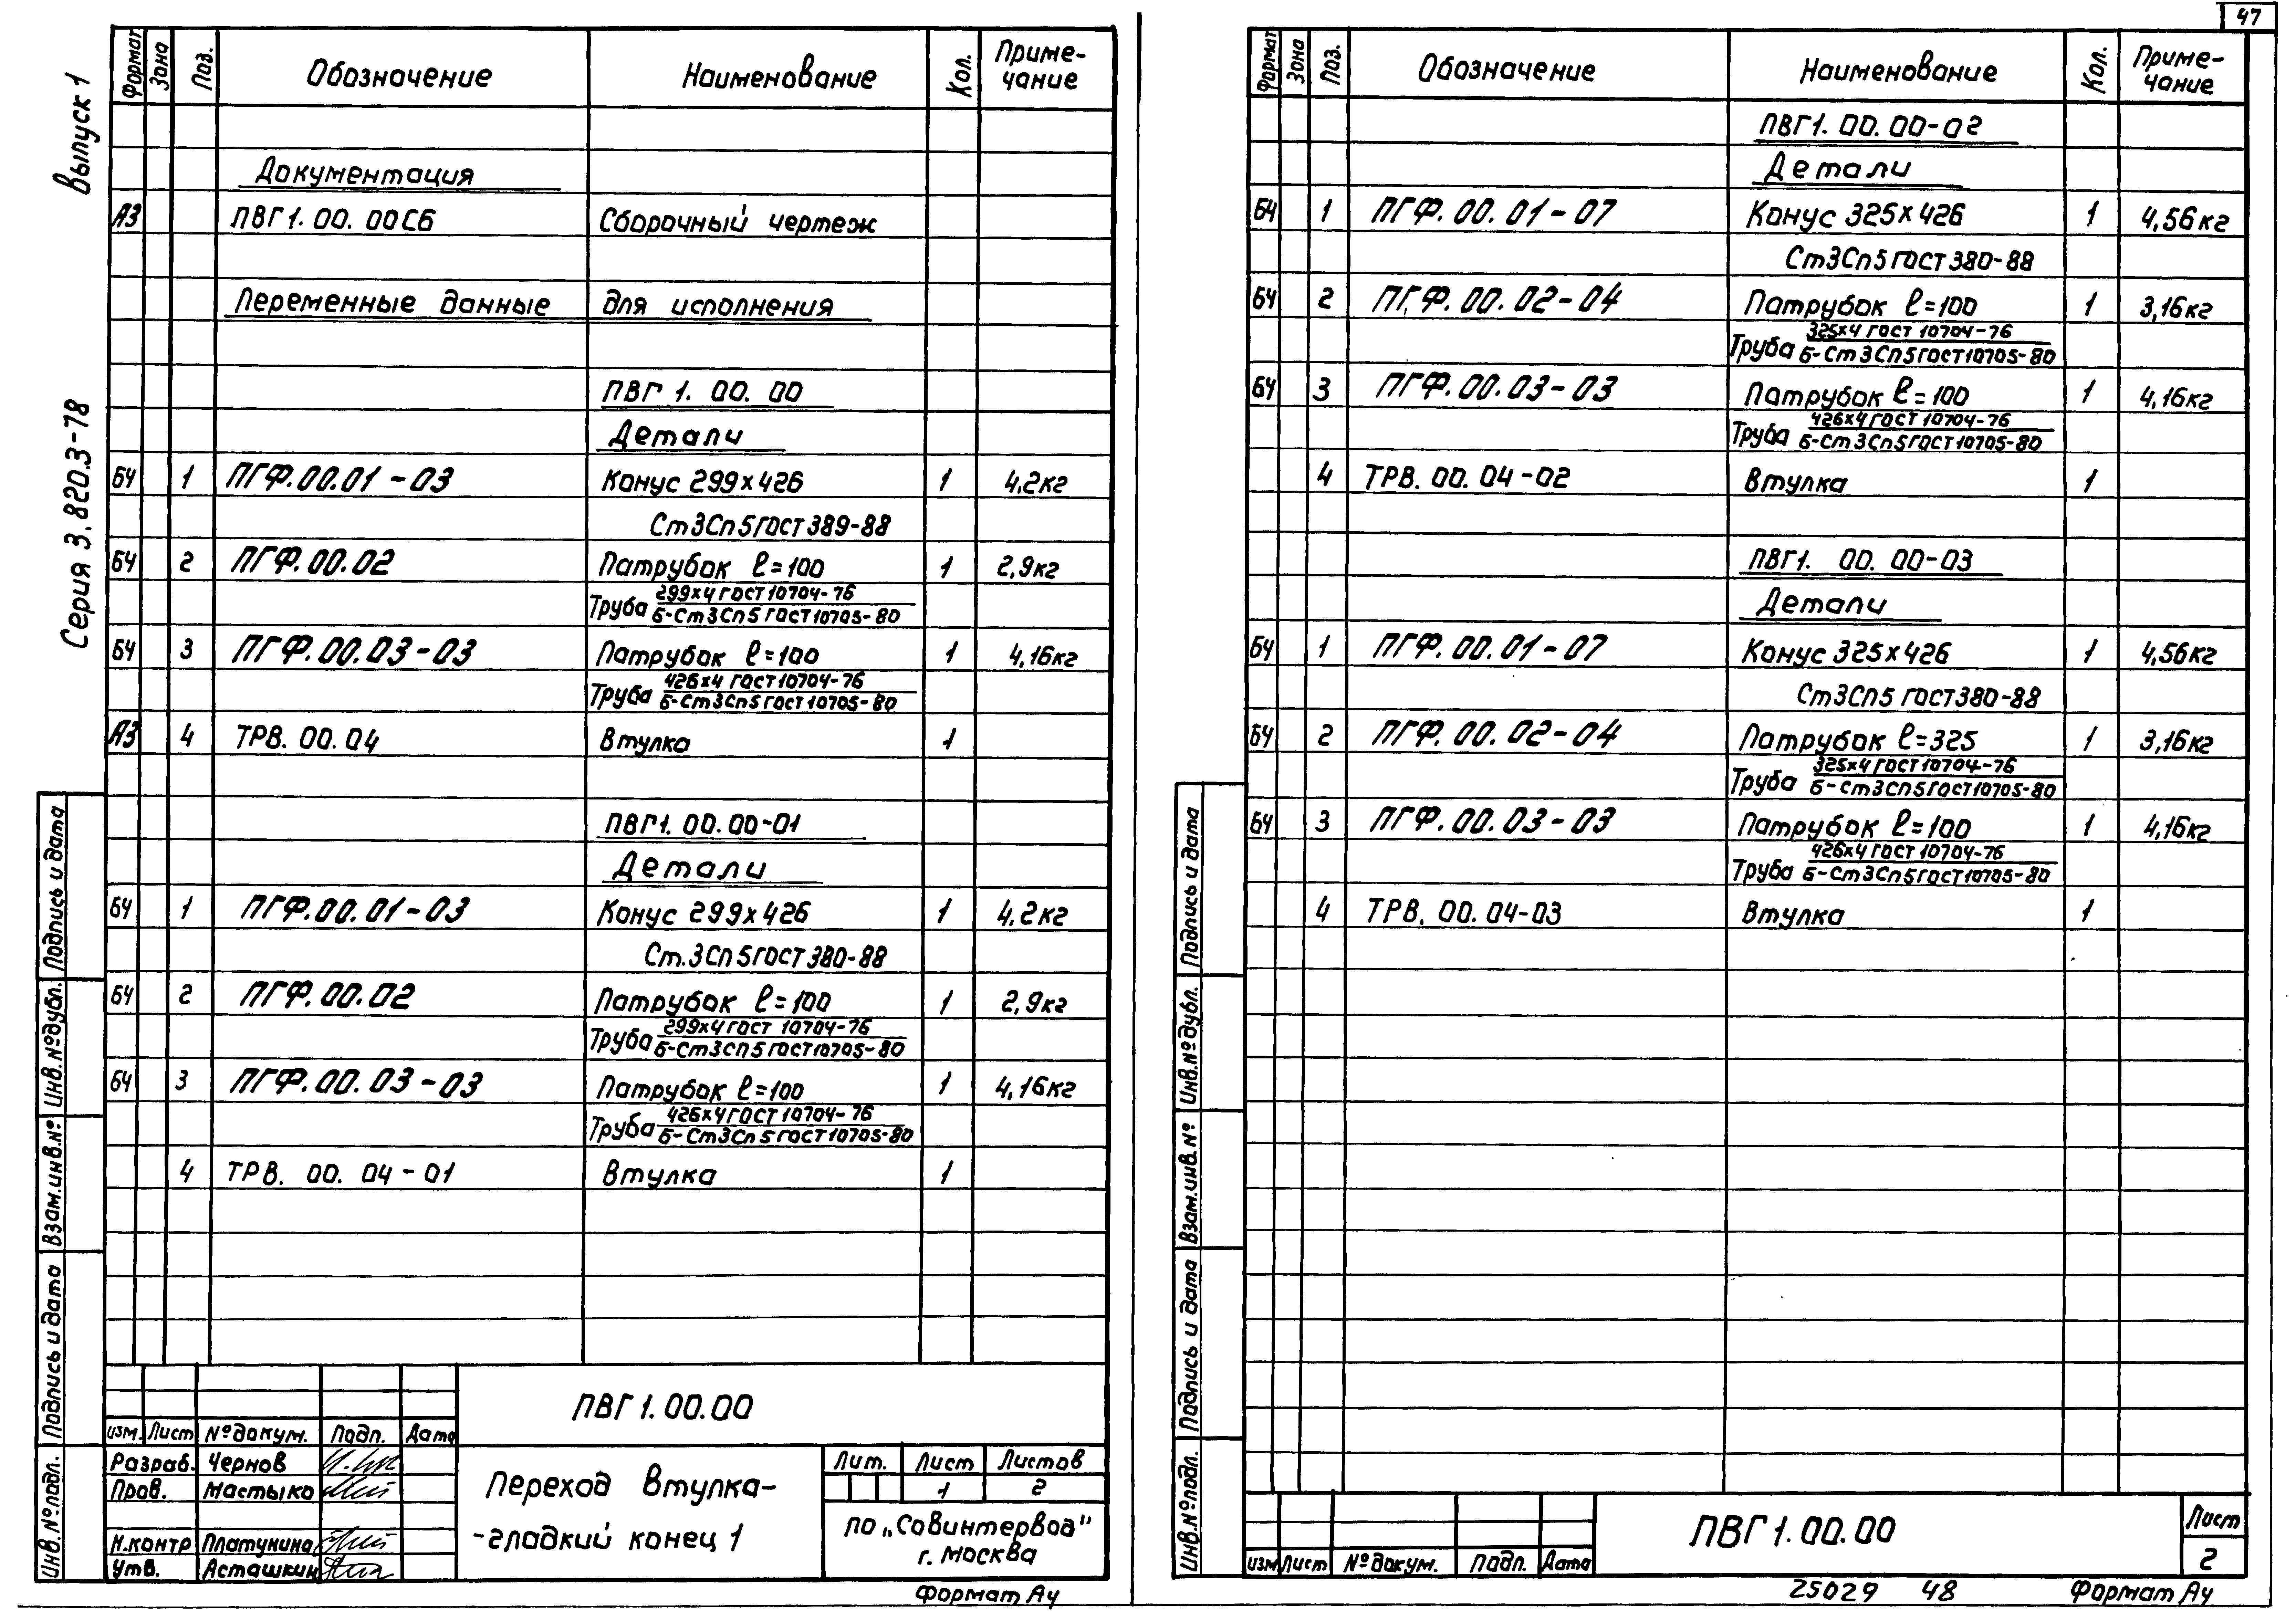 Выпуск 1
Серия 3.820.3-78
Формат Зона Поз. Обозначение Наименование Кол. Приме-
чание
Документация
А3 ПВГ1.00.00СБ Сборочный чертеж
Переменные данные для исполнения
ПВГ 1.00.00
Детали
БЧ 1 ПГФ.00.01-03 Конус 299х426 1 4,2кг
Ст3Сп5ГОСТ389-88
БЧ 2 ПГФ.00.02 Патрубок ℓ=100 1 2,9кг
299х4 ГОСТ 10704-76
Труба Б-Ст3Сп5ГОСТ10705-80
БЧ 3 ПГФ.00.03-03 Патрубок ℓ=100 1 4,16кг
426х4 ГОСТ10704-76
Труба Б-Ст3Сп5ГОСТ10705-80
А3 4 ТРВ.00.04 Втулка 1
ПВГ1.00.00-01
Детали
БЧ 1 ПГФ.00.01-03 Конус 299х426 1 4,2кг
Ст.3Сп5ГОСТ380-88
БЧ 2 ПГФ.00.02 Патрубок ℓ=100 1 2,9кг
299х4 ГОСТ 10704-76
Труба Б-Ст3Сп5ГОСТ10705-80
БЧ 3 ПГФ.00.03-03 Патрубок ℓ=100 1 4,16кг
426х4 ГОСТ 10704-76
Труба Б-Ст3Сп5ГОСТ10705-80
4 ТРВ.00.04-01 Втулка 1
Подпись и дата
Инв.№дубл.
Взам.инв.№
Подпись и дата
Инв.№подл.
ПВГ1.00.00
изм. Лист №докум. Подп. Дата
Разраб. Чернов
Пров. Мастыко
Н.контр Платунина
Утв. Асташкин
Переход втулка-
-гладкий конец 1
Лит. Лист Листов
1 2
ПО „Совинтервод"
г. Москва
Формат А4
47
Формат Зона Поз. Обозначение Наименование Кол. Приме-
чание
ПВГ1.00.00-02
Детали
БЧ 1 ПГФ.00.01-07 Конус 325х426 1 4,56кг
Ст3Сп5ГОСТ380-88
БЧ 2 ПГФ.00.02-04 Патрубок ℓ=100 1 3,16кг
325х4 ГОСТ 10704-76
Труба Б-Ст3Сп5ГОСТ10705-80
БЧ 3 ПГФ.00.03-03 Патрубок ℓ=100 1 4,16кг
426х4 ГОСТ 10704-76
Труба Б-Ст3Сп5ГОСТ10705-80
4 ТРВ.00.04-02 Втулка 1
ПВГ1.00.00-03
Детали
БЧ 1 ПГФ.00.01-07 Конус 325х426 1 4,56кг
Ст3Сп5 ГОСТ380-88
БЧ 2 ПГФ.00.02-04 Патрубок ℓ=325 1 3,16кг
325х4 ГОСТ 10704-76
Труба Б-Ст3Сп5ГОСТ10705-80
БЧ 3 ПГФ.00.03-03 Патрубок ℓ=100 1 4,16кг
426х4 ГОСТ 10704-76
Труба Б-Ст3Сп5ГОСТ10705-80
4 ТРВ.00.04-03 Втулка 1
Подпись и дата
Инв.№дубл.
Взам.инв.№
Подпись и дата
Инв.№подл.
изм Лист №докум. Подп. Дата
ПВГ1.00.00
Лист
2
25029 48 Формат А4